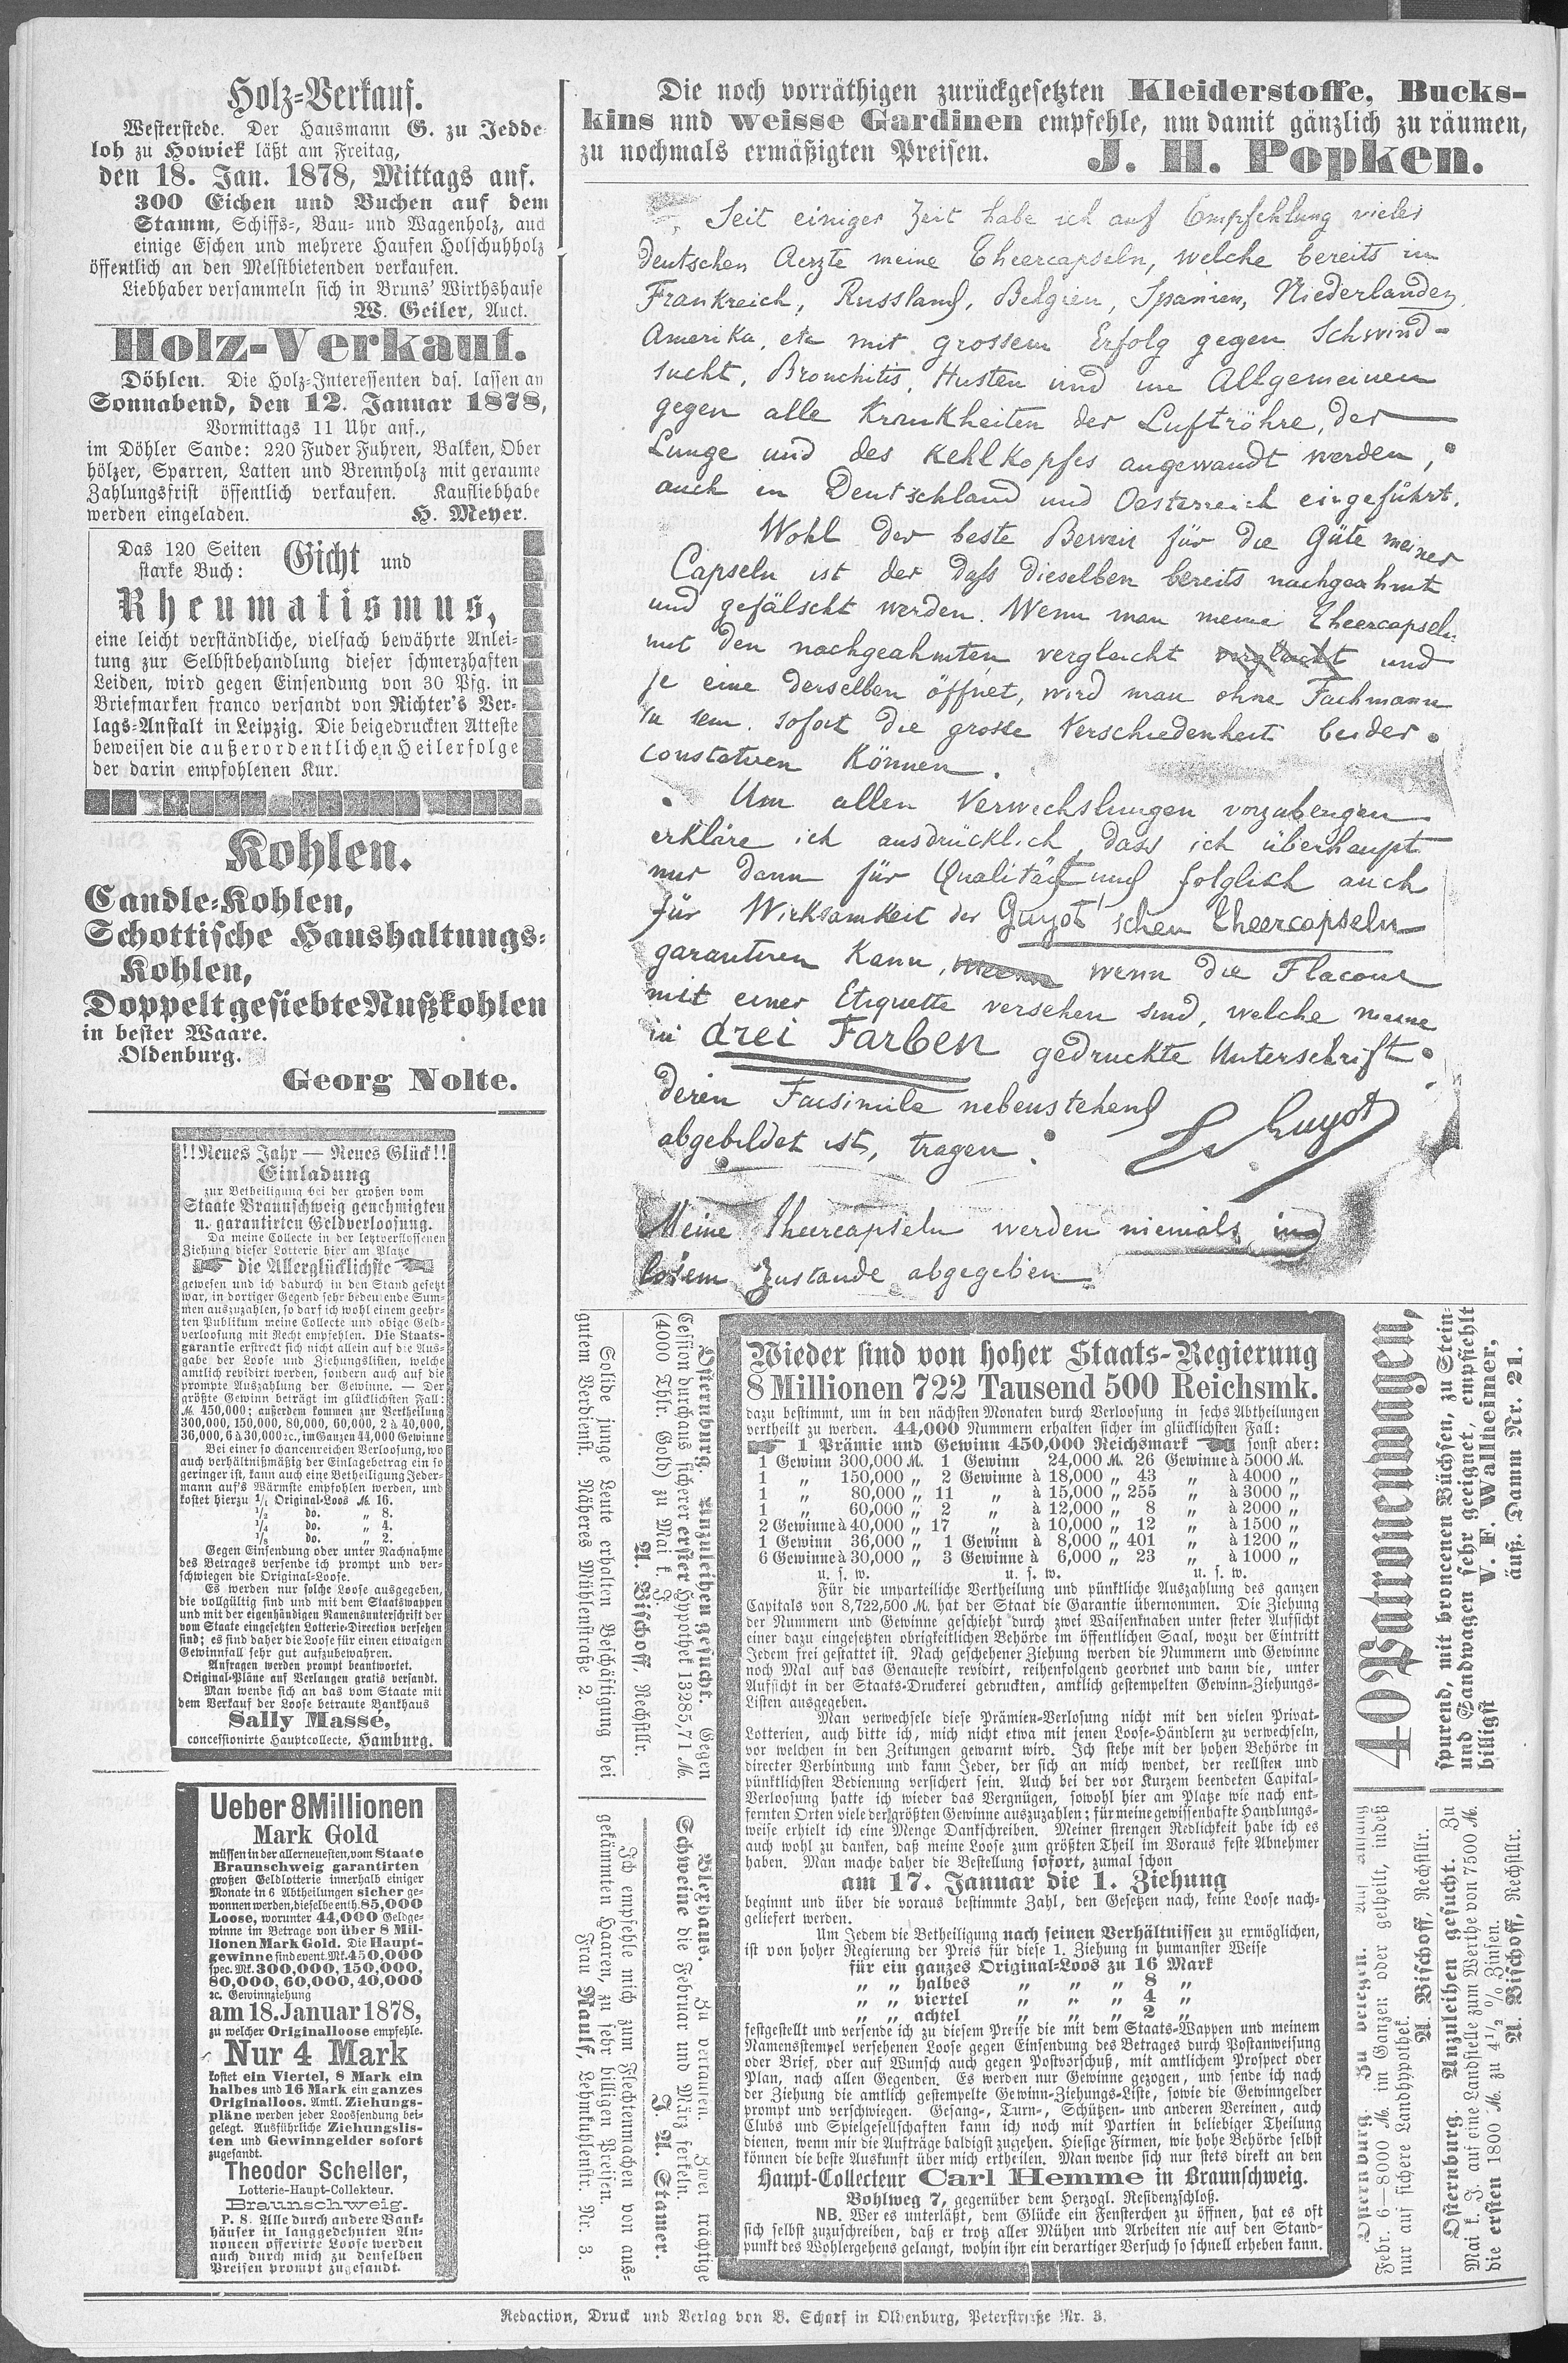 Holz-Verkauf.
Westerstede. Der Hausmann G. zu Jedde-
loh zu Howiek läßt am Freitag,
den 18. Jan. 1878, Mittags anf.
300 Eichen und Buchen auf dem
Stamm, Schiffs-, Bau- und Wagenholz, auch
einige Eschen und mehrere Haufen Holschuhholz
öffentlich an den Meistbietenden verkaufen.
Liebhaber versammeln sich in Bruns' Wirthshause
W. Geiler, Auct.
Holz-Verkauf.
Döhlen. Die Holz-Interessenten das. lassen an
Sonnabend, den 12. Januar 1878,
Vormittags 11 Uhr anf.,
im Döhler Sande: 220 Fuder Fuhren, Balken, Ober
hölzer, Sparren, Latten und Brennholz mit geraume
Zahlungsfrist öffentlich verkaufen. Kaufliebhabe
werden eingeladen. H. Meyer.
Das 120 Seiten
starke Buch: Gicht und
Rheumatismus,
eine leicht verständliche, vielfach bewährte Anlei-
tung zur Selbstbehandlung dieser schmerzhaften
Leiden, wird gegen Einsendung von 30 Pfg. in
Briefmarken franco versandt von Richter's Ver-
lags-Anstalt in Leipzig. Die beigedruckten Atteste
beweisen die außerordentlichen Heilerfolge
der darin empfohlenen Kur.
Kohlen.
Candle-Kohlen,
Schottische Haushaltungs-
Kohlen,
Doppelt gesiebte Nußkohlen
in bester Waare.
Oldenburg.
Georg Nolte.
!!Neues Jahr — Neues Glück!!
Einladung
zur Betheiligung bei der großen vom
Staate Braunschweig genehmigten
u. garantirten Geldverloosung.
Da meine Collecte in der letztverflossenen
Ziehung dieser Lotterie hier am Platze
die Allerglücklichste
gewesen und ich dadurch in den Stand gesetzt
war, in dortiger Gegend sehr bedeutende Sum-
men auszuzahlen, so darf ich wohl einem geehr-
ten Publikum meine Collecte und obige Geld-
verloosung mit Recht empfehlen. Die Staats-
garantie erstreckt sich nicht allein auf die Aus-
gabe der Loose und Ziehungslisten, welche
amtlich revidirt werden, sondern auch auf die
prompte Auszahlung der Gewinne. — Der
größte Gewinn beträgt im glücklichsten Fall:
M. 450,000; außerdem kommen zur Vertheilung
300,000, 150,000, 80,000, 60,000, 2 à 40,000,
36,000, 6 à 30,000 2c., im Ganzen 44,000 Gewinne
Bei einer so chancenreichen Verloosung, wo
auch verhältnißmäßig der Einlagebetrag ein so
geringer ist, kann auch eine Betheiligung Jeder-
mann auf's Wärmste empfohlen werden, und
kostet hierzu 1/1 Original-Loos M. 16.
1/2 do. „ 8.
1/4 do. „ 4.
1/8 do. „ 2.
Gegen Einsendung oder unter Nachnahme
des Betrages versende ich prompt und ver-
schwiegen die Original-Loose.
Es werden nur solche Loose ausgegeben,
die vollgültig sind und mit dem Staatswappen
und mit der eigenhändigen Namensunterschrift der
vom Staate eingesetzten Lotterie-Direction versehen
sind; es sind daher die Loose für einen etwaigen
Gewinnfall sehr gut aufzubewahren.
Anfragen werden prompt beantwortet.
Original-Pläne auf Verlangen gratis versandt.
Man wende sich an das vom Staate mit
dem Verkauf der Loose betraute Bankhaus
Sally Massé,
concessionirte Hauptcollecte, Hamburg.
Ueber 8 Millionen
Mark Gold
müssen in der allerneuesten, vom Staate
Braunschweig garantirten
großen Geldlotterie innerhalb einiger
Monate in 6 Abtheilungen sicher ge-
wonnen werden, dieselbe enth. 85,000
Loose, worunter 44,000 Geldge-
winne im Betrage von über 8 Mil-
lionen Mark Gold. Die Haupt-
gewinne sind event. Mk. 450,000
spec. Mk. 300,000, 150,000,
80,000, 60,000, 40,000
2c. Gewinnziehung
am 18. Januar 1878,
zu welcher Originalloose empfehle.
Nur 4 Mark
kostet ein Viertel, 8 Mark ein
halbes und 16 Mark ein ganzes
Originalloos. Amtl. Ziehungs-
pläne werden jeder Loossendung bei-
gelegt. Ausführliche Ziehungslis-
ten und Gewinngelder sofort
zugesandt.
Theodor Scheller,
Lotterie-Haupt-Collekteur.
Braunschweig.
P. S. Alle durch andere Bank-
häuser in langgedehnten An-
noncen offerirte Loose werden
auch durch mich zu denselben
Preisen prompt zugesandt.
Die noch vorräthigen zurückgesetzten Kleiderstoffe, Bucks-
kins und weisse Gardinen empfehle, um damit gänzlich zu räumen,
zu nochmals ermäßigten Preisen. J. H. Popken.
Seit einiger Zeit habe ich auf Empfehlung vieler
deutschen Aerzte meine Theercapseln, welche bereits in
Frankreich, Russland, Belgien, Spanien, Niederlanden,
Amerika, etc mit grossem Erfolg gegen Schwind-
sucht, Bronchitis, Husten und im Allgemeinen
gegen alle Krankheiten der Luftröhre, der
Lunge und des Kehlkopfes angewandt werden,
auch in Deutschland und Oesterreich eingeführt.
Wohl der beste Beweis für die Güte meiner
Capseln ist der daß dieselben bereits nachgeahmt
und gefälscht werden. Wenn man meine Theercapseln
mit den nachgeahmten vergleicht und
je eine derselben öffnet, wird man ohne Fachmann
zu sein, sofort die grosse Verschiedenheit beider
constatiren Können.
Um allen Verwechslungen vorzubeugen
erkläre ich ausdrücklich, dass ich überhaupt
nur dann für Qualität und folglich auch
für Wirksamkeit der Guyot'schen Theercapseln
garantiren Kann, wenn die Flacons
mit einer Etiquette versehen sind, welche meine
in drei Farben gedruckte Unterschrift
deren Facsimile nebenstehend
abgebildet ist, tragen.
Guyot
Meine Theercapseln werden niemals in
losem Zustande abgegeben
Osternburg. Anzuleihen gesucht. Gegen
Cession durchaus sicherer erster Hypothek 13285,71 M.
(4000 Thlr. Gold) zu Mai k. J.
A. Bischoff, Rechstllr.
Solide junge Leute erhalten Beschäftigung bei
gutem Verdienst. Näheres Mühlenstraße 2.
Bleghaus. Zu verkaufen. Zwei trächtige
Schweine die Februar und März ferkeln.
J. A. Stamer.
Ich empfehle mich zum Flechtenmachen von aus-
gekämmten Haaren, zu sehr billigen Preisen.
Frau Maulf, Lehmkuhlenstr. Nr. 3.
Wieder sind von hoher Staats-Regierung
8 Millionen 722 Tausend 500 Reichsmk.
dazu bestimmt, um in den nächsten Monaten durch Verloosung in sechs Abtheilungen
vertheilt zu werden. 44,000 Nummern erhalten sicher im glücklichsten Fall:
1 Prämie und Gewinn 450,000 Reichsmark sonst aber:
1 Gewinn 300,000 M. 1 Gewinn 24,000 M. 26 Gewinne à 5000 M.
1 „ 150,000 „ 2 Gewinne à 18,000 „ 43 „ à 4000 „
1 „ 80,000 „ 11 „ à 15,000 „ 255 „ à 3000 „
1 „ 60,000 „ 2 „ à 12,000 „ 8 „ à 2000 „
2 Gewinne à 40,000 „ 17 „ à 10,000 „ 12 „ à 1500 „
1 Gewinn 36,000 „ 1 Gewinn à 8,000 „ 401 „ à 1200 „
6 Gewinne à 30,000 „ 3 Gewinne à 6,000 „ 23 „ à 1000 „
u. s. w. u. s. w. u. s. w.
Für die unparteiliche Vertheilung und pünktliche Auszahlung des ganzen
Capitals von 8,722,500 M. hat der Staat die Garantie übernommen. Die Ziehung
der Nummern und Gewinne geschieht durch zwei Waisenknaben unter steter Aufsicht
einer dazu eingesetzten obrigkeitlichen Behörde im öffentlichen Saal, wozu der Eintritt
Jedem frei gestattet ist. Nach geschehener Ziehung werden die Nummern und Gewinne
noch Mal auf das Genaueste revidirt, reihenfolgend geordnet und dann die, unter
Aufsicht in der Staats-Druckerei gedruckten, amtlich gestempelten Gewinn-Ziehungs-
Listen ausgegeben.
Man verwechsele diese Prämien-Verlosung nicht mit den vielen Privat-
Lotterien, auch bitte ich, mich nicht etwa mit jenen Loose-Händlern zu verwechseln,
vor welchen in den Zeitungen gewarnt wird. Ich stehe mit der hohen Behörde in
directer Verbindung und kann Jeder, der sich an mich wendet, der reellsten und
pünktlichsten Bedienung versichert sein. Auch bei der vor Kurzem beendeten Capital-
Verloosung hatte ich wieder das Vergnügen, sowohl hier am Platze wie nach ent-
fernten Orten viele der größten Gewinne auszuzahlen; für meine gewissenhafte Handlungs-
weise erhielt ich eine Menge Dankschreiben. Meiner strengen Redlichkeit habe ich es
auch wohl zu danken, daß meine Loose zum größten Theil im Voraus feste Abnehmer
haben. Man mache daher die Bestellung sofort, zumal schon
am 17. Januar die 1. Ziehung
beginnt und über die voraus bestimmte Zahl, den Gesetzen nach, keine Loose nach-
geliefert werden.
Um Jedem die Betheiligung nach seinen Verhältnissen zu ermöglichen,
ist von hoher Regierung der Preis für diese 1. Ziehung in humanster Weise
für ein ganzes Original-Loos zu 16 Mark
„ „ halbes „ „ „ 8 „
„ „ viertel „ „ „ 4 „
„ „ achtel „ „ „ 2 „
festgestellt und versende ich zu diesem Preise die mit dem Staats-Wappen und meinem
Namensstempel versehenen Loose gegen Einsendung des Betrages durch Postanweisung
oder Brief, oder auf Wunsch auch gegen Postvorschuß, mit amtlichem Prospect oder
Plan, nach allen Gegenden. Es werden nur Gewinne gezogen, und sende ich nach
der Ziehung die amtlich gestempelte Gewinn-Ziehungs-Liste, sowie die Gewinngelder
prompt und verschwiegen. Gesang-, Turn-, Schützen- und anderen Vereinen, auch
Clubs und Spielgesellschaften kann ich noch mit Partien in beliebiger Theilung
dienen, wenn mir die Aufträge baldigst zugehen. Hiesige Firmen, wie hohe Behörde selbst
können die beste Auskunft über mich ertheilen. Man wende sich nur stets direkt an den
Haupt-Collecteur Carl Hemme in Braunschweig.
Bohlweg 7, gegenüber dem Herzogl. Residenzschloß.
NB. Wer es unterläßt, dem Glücke ein Fensterchen zu öffnen, hat es oft
sich selbst zuzuschreiben, daß er trotz aller Mühen und Arbeiten nie auf den Stand-
punkt des Wohlergehens gelangt, wohin ihn ein derartiger Versuch so schnell erheben kann.
40 Patronenwagen,
spurend, mit broncenen Büchsen, zu Stein-
und Sandwagen sehr geeignet, empfiehlt
billigst V. F. Wallheimer,
äuß. Damm Nr. 21.
Osternburg. Zu belegen. Auf Anfang
Febr. 6—8000 M. im Ganzen oder getheilt, indeß
nur auf sichere Landhypothek.
A. Bischoff, Rechstllr.
Osternburg. Anzuleihen gesucht. Zu
Mai k. J. auf eine Landstelle zum Werthe von 7500 M.
die ersten 1800 M. zu 4 1/2 % Zinsen.
A. Bischoff, Rechstllr.
Redaction, Druck und Verlag von B. Scharf in Oldenburg, Peterstraße Nr. 3.